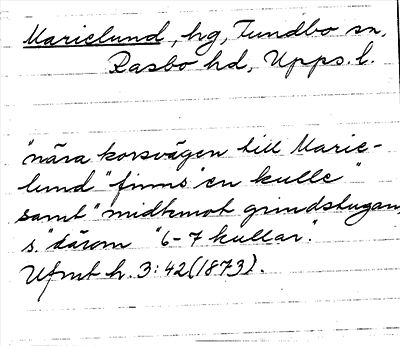 Marielund, hg, Funbo sn,
Rasbo hd, Upps. l.
"nära korsvägen till Marie-
lund" finns "en kulle"
samt "midtemot grindstugan,
s." därom "6-7 kullar".
Ufmt h. 3:42 (1873).